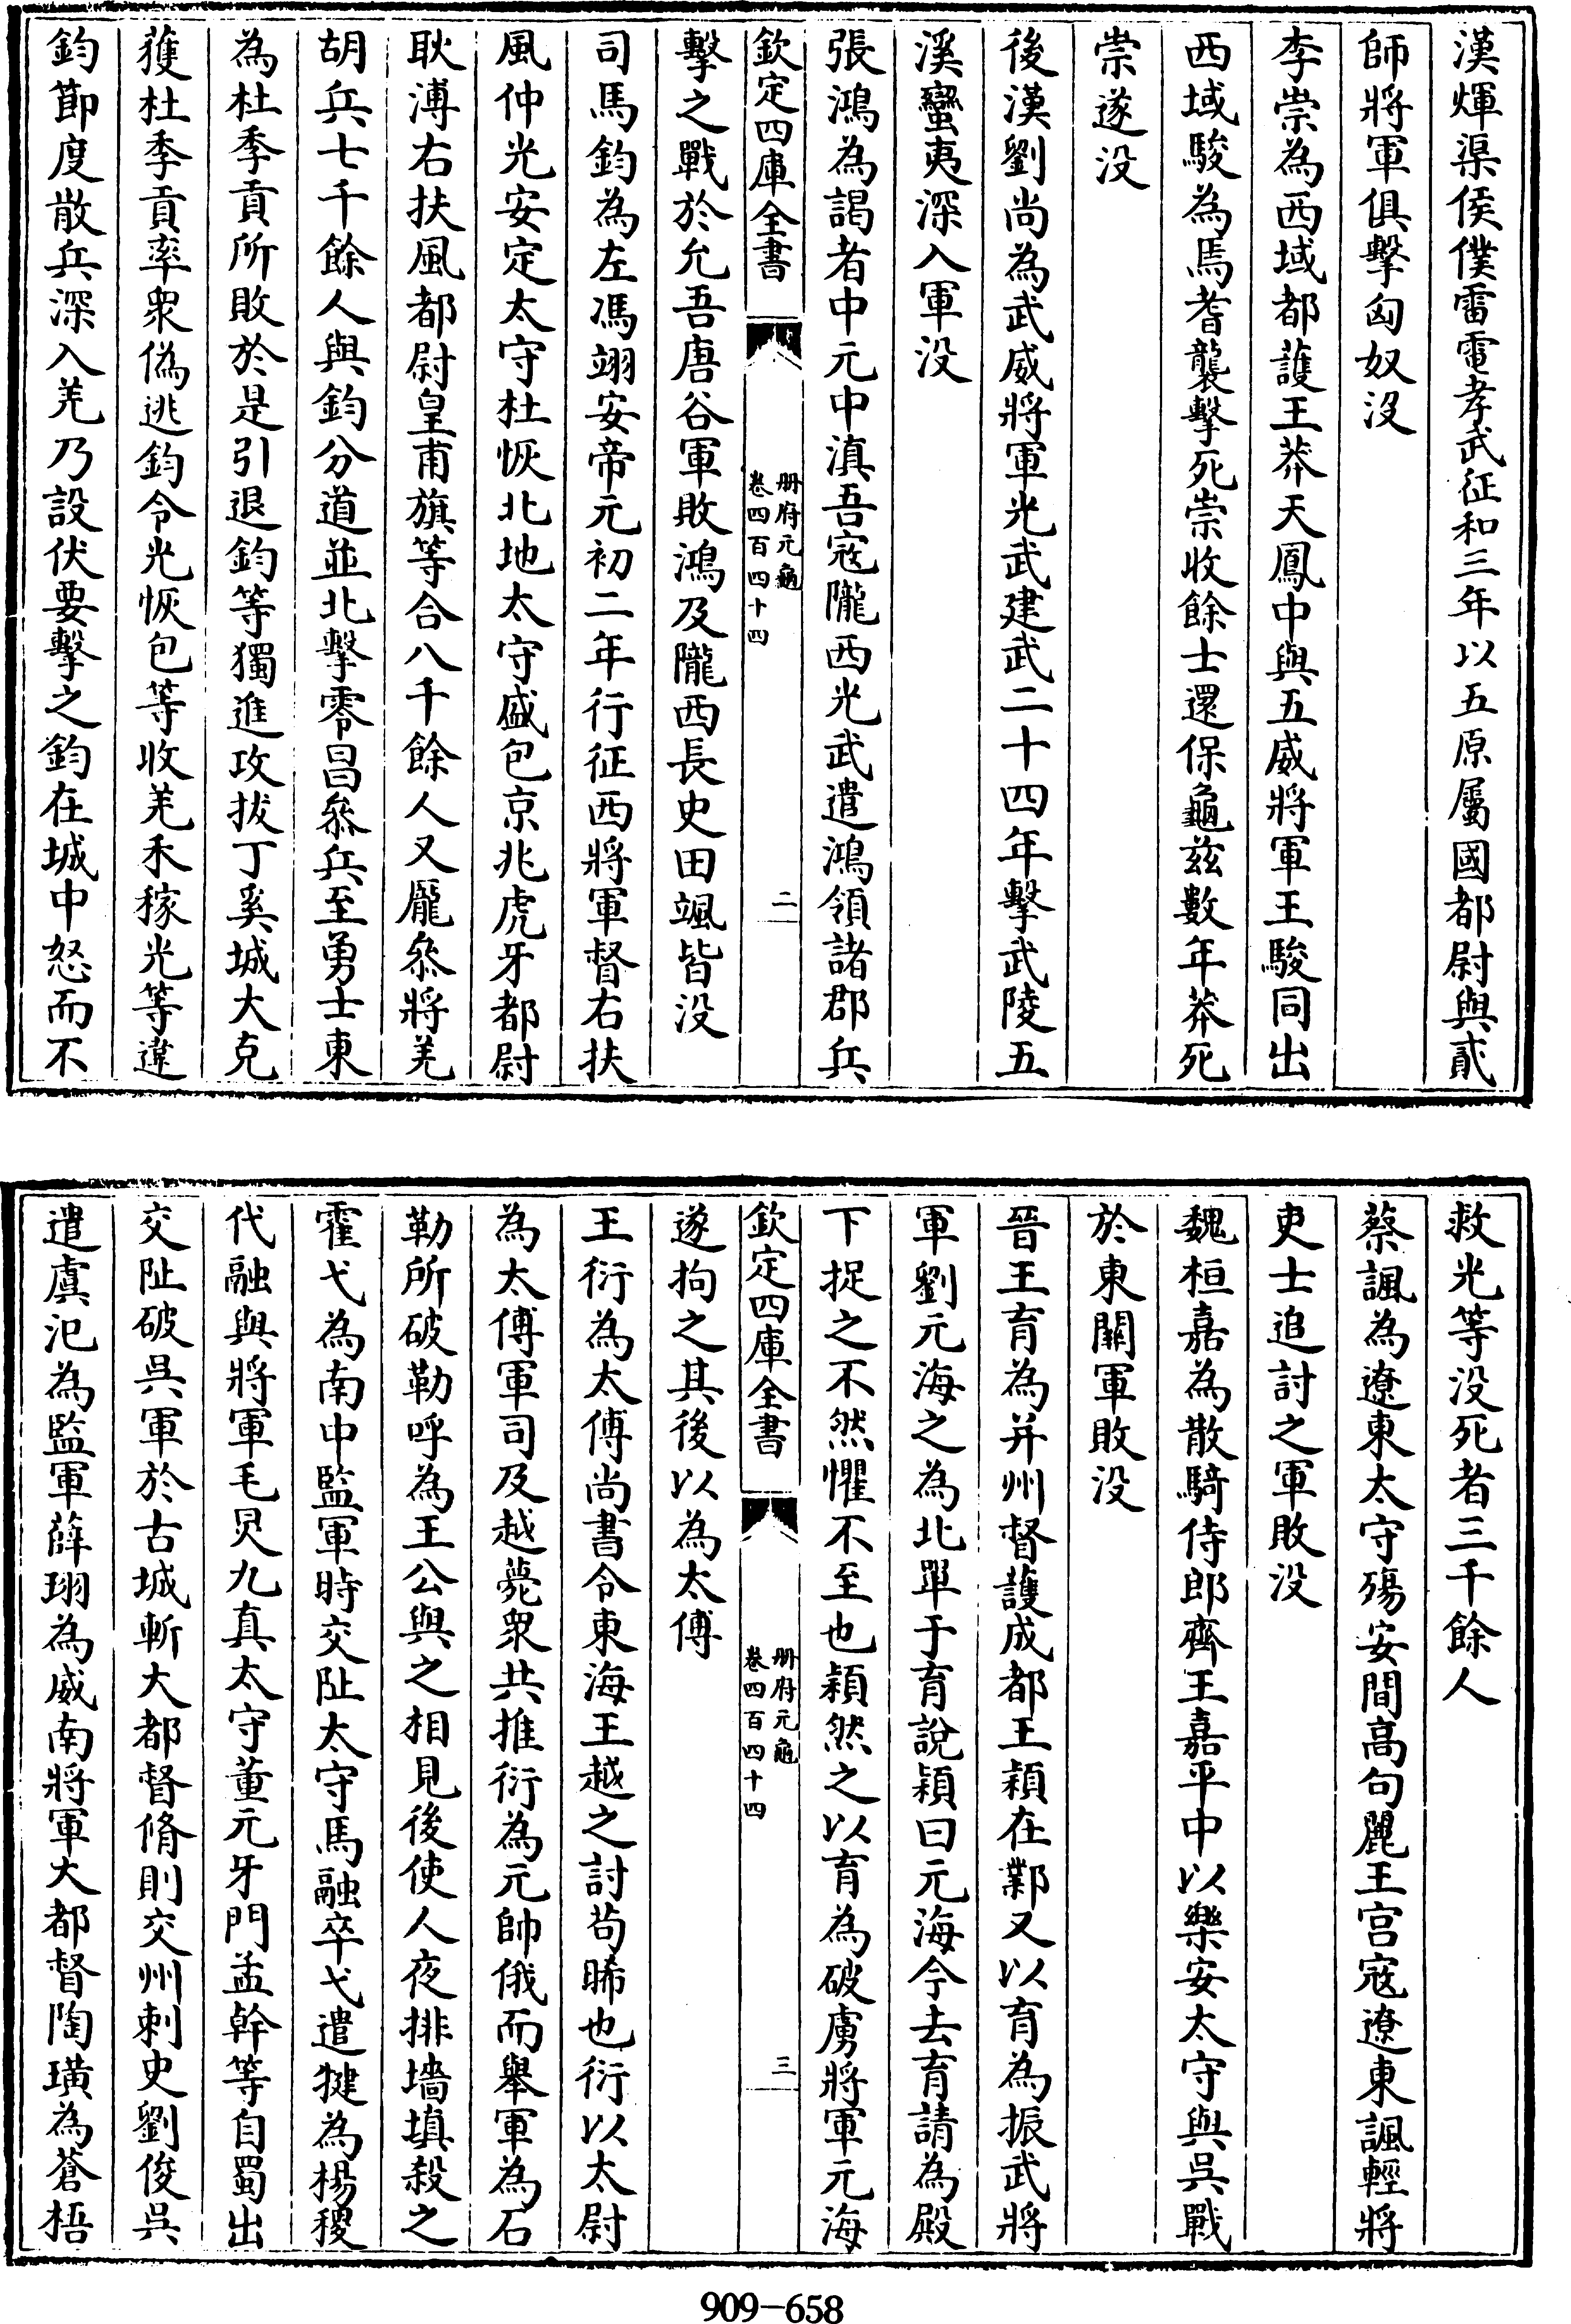 漢煇渠侯僕雷電孝武征和三年以五原屬國都尉與貳
師將軍俱擊匈奴没
李崇為西域都護王莽天鳳中與五威將軍王駿同出
西域駿為焉耆襲擊死崇收餘士還保龜兹數年莽死
崇遂没
後漢劉尚為武威將軍光武建武二十四年擊武陵五
溪蠻夷深入軍没
張鴻為謁者中元中滇吾寇隴西光武遣鴻領諸郡兵
欽定四庫全書
册府元龜
卷四百四十四
二
擊之戰於允吾唐谷軍敗鴻及隴西長史田颯皆没
司馬鈞為左馮翊安帝元初二年行征西將軍督右扶
風仲光安定太守杜恢北地太守盛包京兆虎牙都尉
耿溥右扶風都尉皇甫旗等合八千餘人又龎叅將羌
胡兵七千餘人與鈞分道並北擊零昌叅兵至勇士東
為杜季貢所敗於是引退鈞等獨進攻拔丁奚城大克
獲杜季貢率衆偽逃鈞令光恢包等收羌禾稼光等違
鈞節度散兵深入羌乃設伏要擊之鈞在城中怒而不
救光等没死者三千餘人
蔡諷為遼東太守殤安間高句麗王宫寇遼東諷輕將
吏士追討之軍敗没
魏桓嘉為散騎侍郎齊王嘉平中以樂安太守與吳戰
於東關軍敗没
晉王育為并州督護成都王穎在鄴又以育為振武將
軍劉元海之為北單于育說穎曰元海今去育請為殿
下捉之不然懼不至也穎然之以育為破虜將軍元海
欽定四庫全書
册府元龜
卷四百四十四
三
遂拘之其後以為太傅
王衍為太傅尚書令東海王越之討苟晞也衍以太尉
為太傅軍司及越薨衆共推衍為元帥俄而舉軍為石
勒所破勒呼為王公與之相見後使人夜排墻填殺之
霍弋為南中監軍時交阯太守馬融卒弋遣犍為楊稷
代融與將軍毛炅九真太守董元牙門孟幹等自蜀出
交阯破吳軍於古城斬大都督脩則交州刺史劉俊吳
遣虞汜為監軍薛珝為威南將軍大都督陶璜為蒼梧
909-658